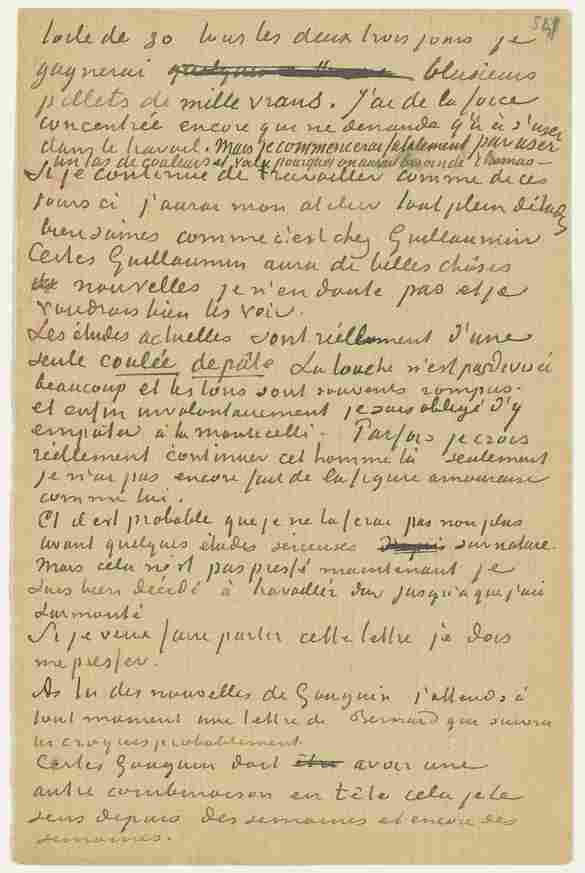 toile de 30 tous les deux trois jours je
gagnerai plusieurs
billets de mille francs. J'ai de la force
concentrée encore qui ne demande qu'à s'user
dans le travail. Mais je commencerai fatalement par user
un tas de couleurs et voilà pourquoi on aurait besoin de Thomas –
Si je continue de travailler comme de ces
jours ci j'aurai mon atelier tout plein d'études
bien saines comme c'est chez Guillaumin
Certes Guillaumin aura de belles choses
nouvelles je n'en doute pas et je
voudrais bien les voir.
Les études actuelles sont réellement d'une
seule coulée de pâte La touche n'est pas divisée
beaucoup et les tons sont souvents rompus.
et enfin involontairement je suis obligé d'y
empâter à la monticelli. Parfois je crois
réellement continuer cet homme là seulement
je n'ai pas encore fait de la figure amoureuse
comme lui.
Et il est probable que je ne la ferai pas non plus
avant quelques études serieuses sur nature.
Mais cela n'est pas pressé maintenant je
suis bien décidé à travailler dur jusqu'à que j'aie
surmonté
Si je veux faire partir cette lettre je dois
me presser.
As tu des nouvelles de Gauguin j'attends à
tout moment une lettre de Bernard qui suivra
les croquis probablement
Certes Gauguin doit avoir une
autre combinaison en tête cela je le
sens depuis des semaines et encore des
semaines.